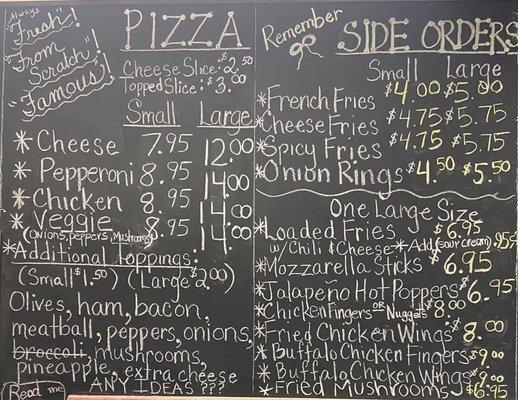 Always
"Fresh"!
"From
Scratch"!
"Famous"!
PIZZA
Cheese Slice: $2.50
Topped Slice: $3.00
Small Large
* Cheese 7.95 12.00
* Pepperoni 8.95 14.00
* Chicken 8.95 14.00
* Veggie 8.95 14.00
(Onions, peppers, Mushrooms)
* Additional Toppings:
(Small $1.50) (Large $2.00)
Olives, ham, bacon,
meatball, peppers, onions,
broccoli, mushrooms,
pineapple, extra cheese
Read me ANY IDEAS ???
Remember
SIDE ORDERS
Small Large
* French Fries $4.00 $5.00
* Cheese Fries $4.75 $5.75
* Spicy Fries $4.75 $5.75
* Onion Rings $4.50 $5.50
One Large Size
* Loaded Fries $6.95
w/ Chili & Cheese * Add (sour cream) .95¢
* Mozzarella Sticks $6.95
* Jalapeño Hot Poppers $6.95
* Chicken Fingers or Nuggets $8.00
* Fried Chicken Wings $8.00
* Buffalo Chicken Fingers $9.00
* Buffalo Chicken Wings $9.00
* Fried Mushrooms $6.95